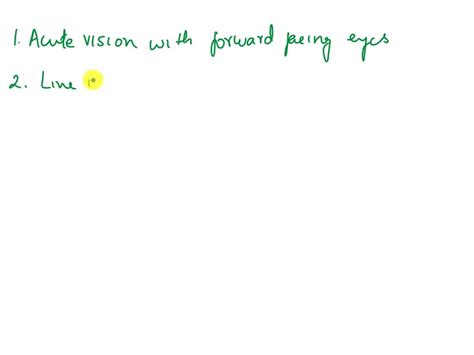 1. Acute vision with forward facing eyes
2. Line i